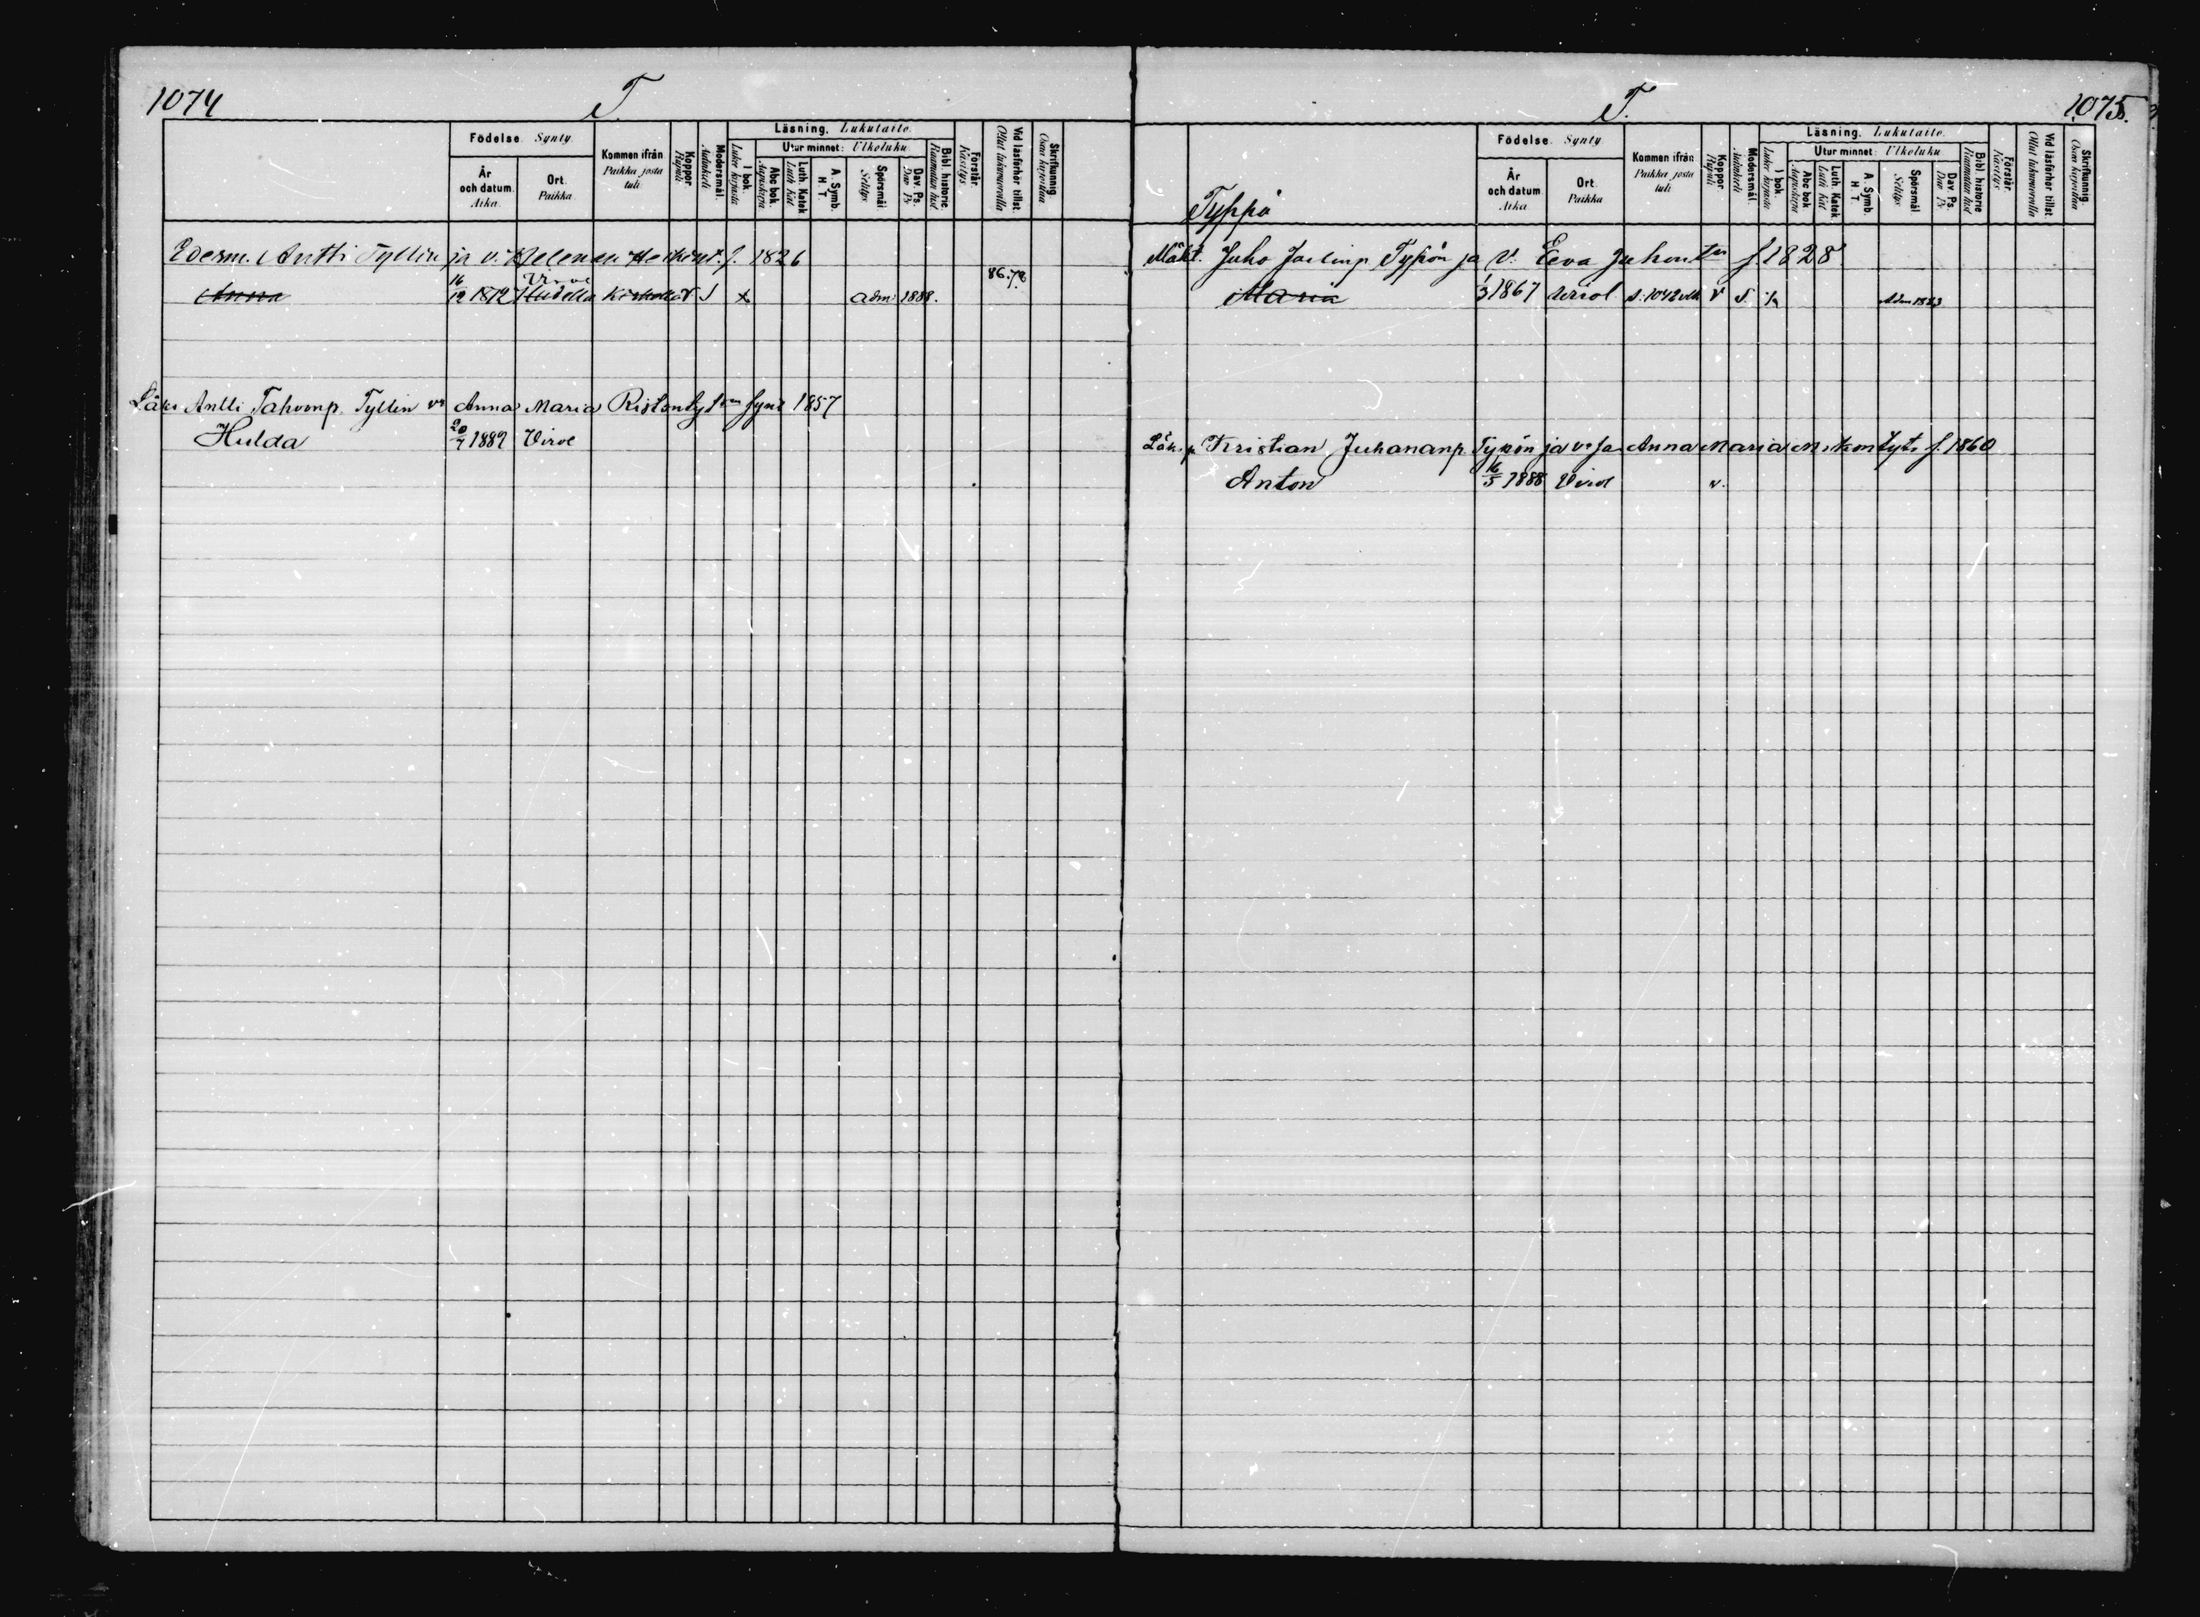 1074
T.
Födelse. Synty.
Kommen ifrån
Paikka josta
tuli
Koppor
Rupuli
Modersmål.
Äidinkieli
Läsning. Lukutaito.
I bok.
Lukee kirjasta
Utur minnet: Ulkoluku.
Abc bok.
Aapiskirja
Luth. Katek
Luth. Kat
A. Symb.
H. T.
Spörsmål
Selitys
Dav. Ps.
Dav. Ps
Bibl. historie.
Raamatun hist
Förstår.
Käsitys
Vid läsförhör tillst.
Ollut lukuvuorolla
Skrifkunnig.
Osaa kirjoittaa
År
och datum.
Aika.
Ort.
Paikka.
Edesm. Antti Tyllin ja v. Helenan f. 1826
Anna 16/12 1872 Virol S x adm. 1888. 86.78
Läks Antti Tahvonp. Tyllin vn Anna Maria Ristontyt synt 1857
Hulda 20/7 1882 Virol
T.
1075.
Födelse. Synty
Kommen ifrån
Paikka josta
tuli
Koppor
Rupuli
Modersmål
Äidinkieli
Läsning. Lukutaito.
I bok.
Lukee kirjasta
Utur minnet: Ulkoluku.
Abc bok
Aapiskirja
Luth. Katek
Luth. Kat
A. Symb.
H. T.
Spörsmål
Selitys
Dav. Ps.
Dav. Ps
Bibl. historie
Raamatun hist
Förstår.
Käsitys
Vid läsförhör tillst.
Ollut lukuvuorolla
Skrifkunnig.
Osaa kirjoittaa
År
och datum
Aika
Ort.
Paikka
Typpö
Mäkt. Juho Typön ja v. Eeva Juhontr f. 1828
Maria 1/3 1867 Virol s. 1042 v S Adm 1883
Kristian Juhananp. Typön ja v:sa Anna Maria Mikontyt. f. 1860
Anton 16/5 1888 Virol v.